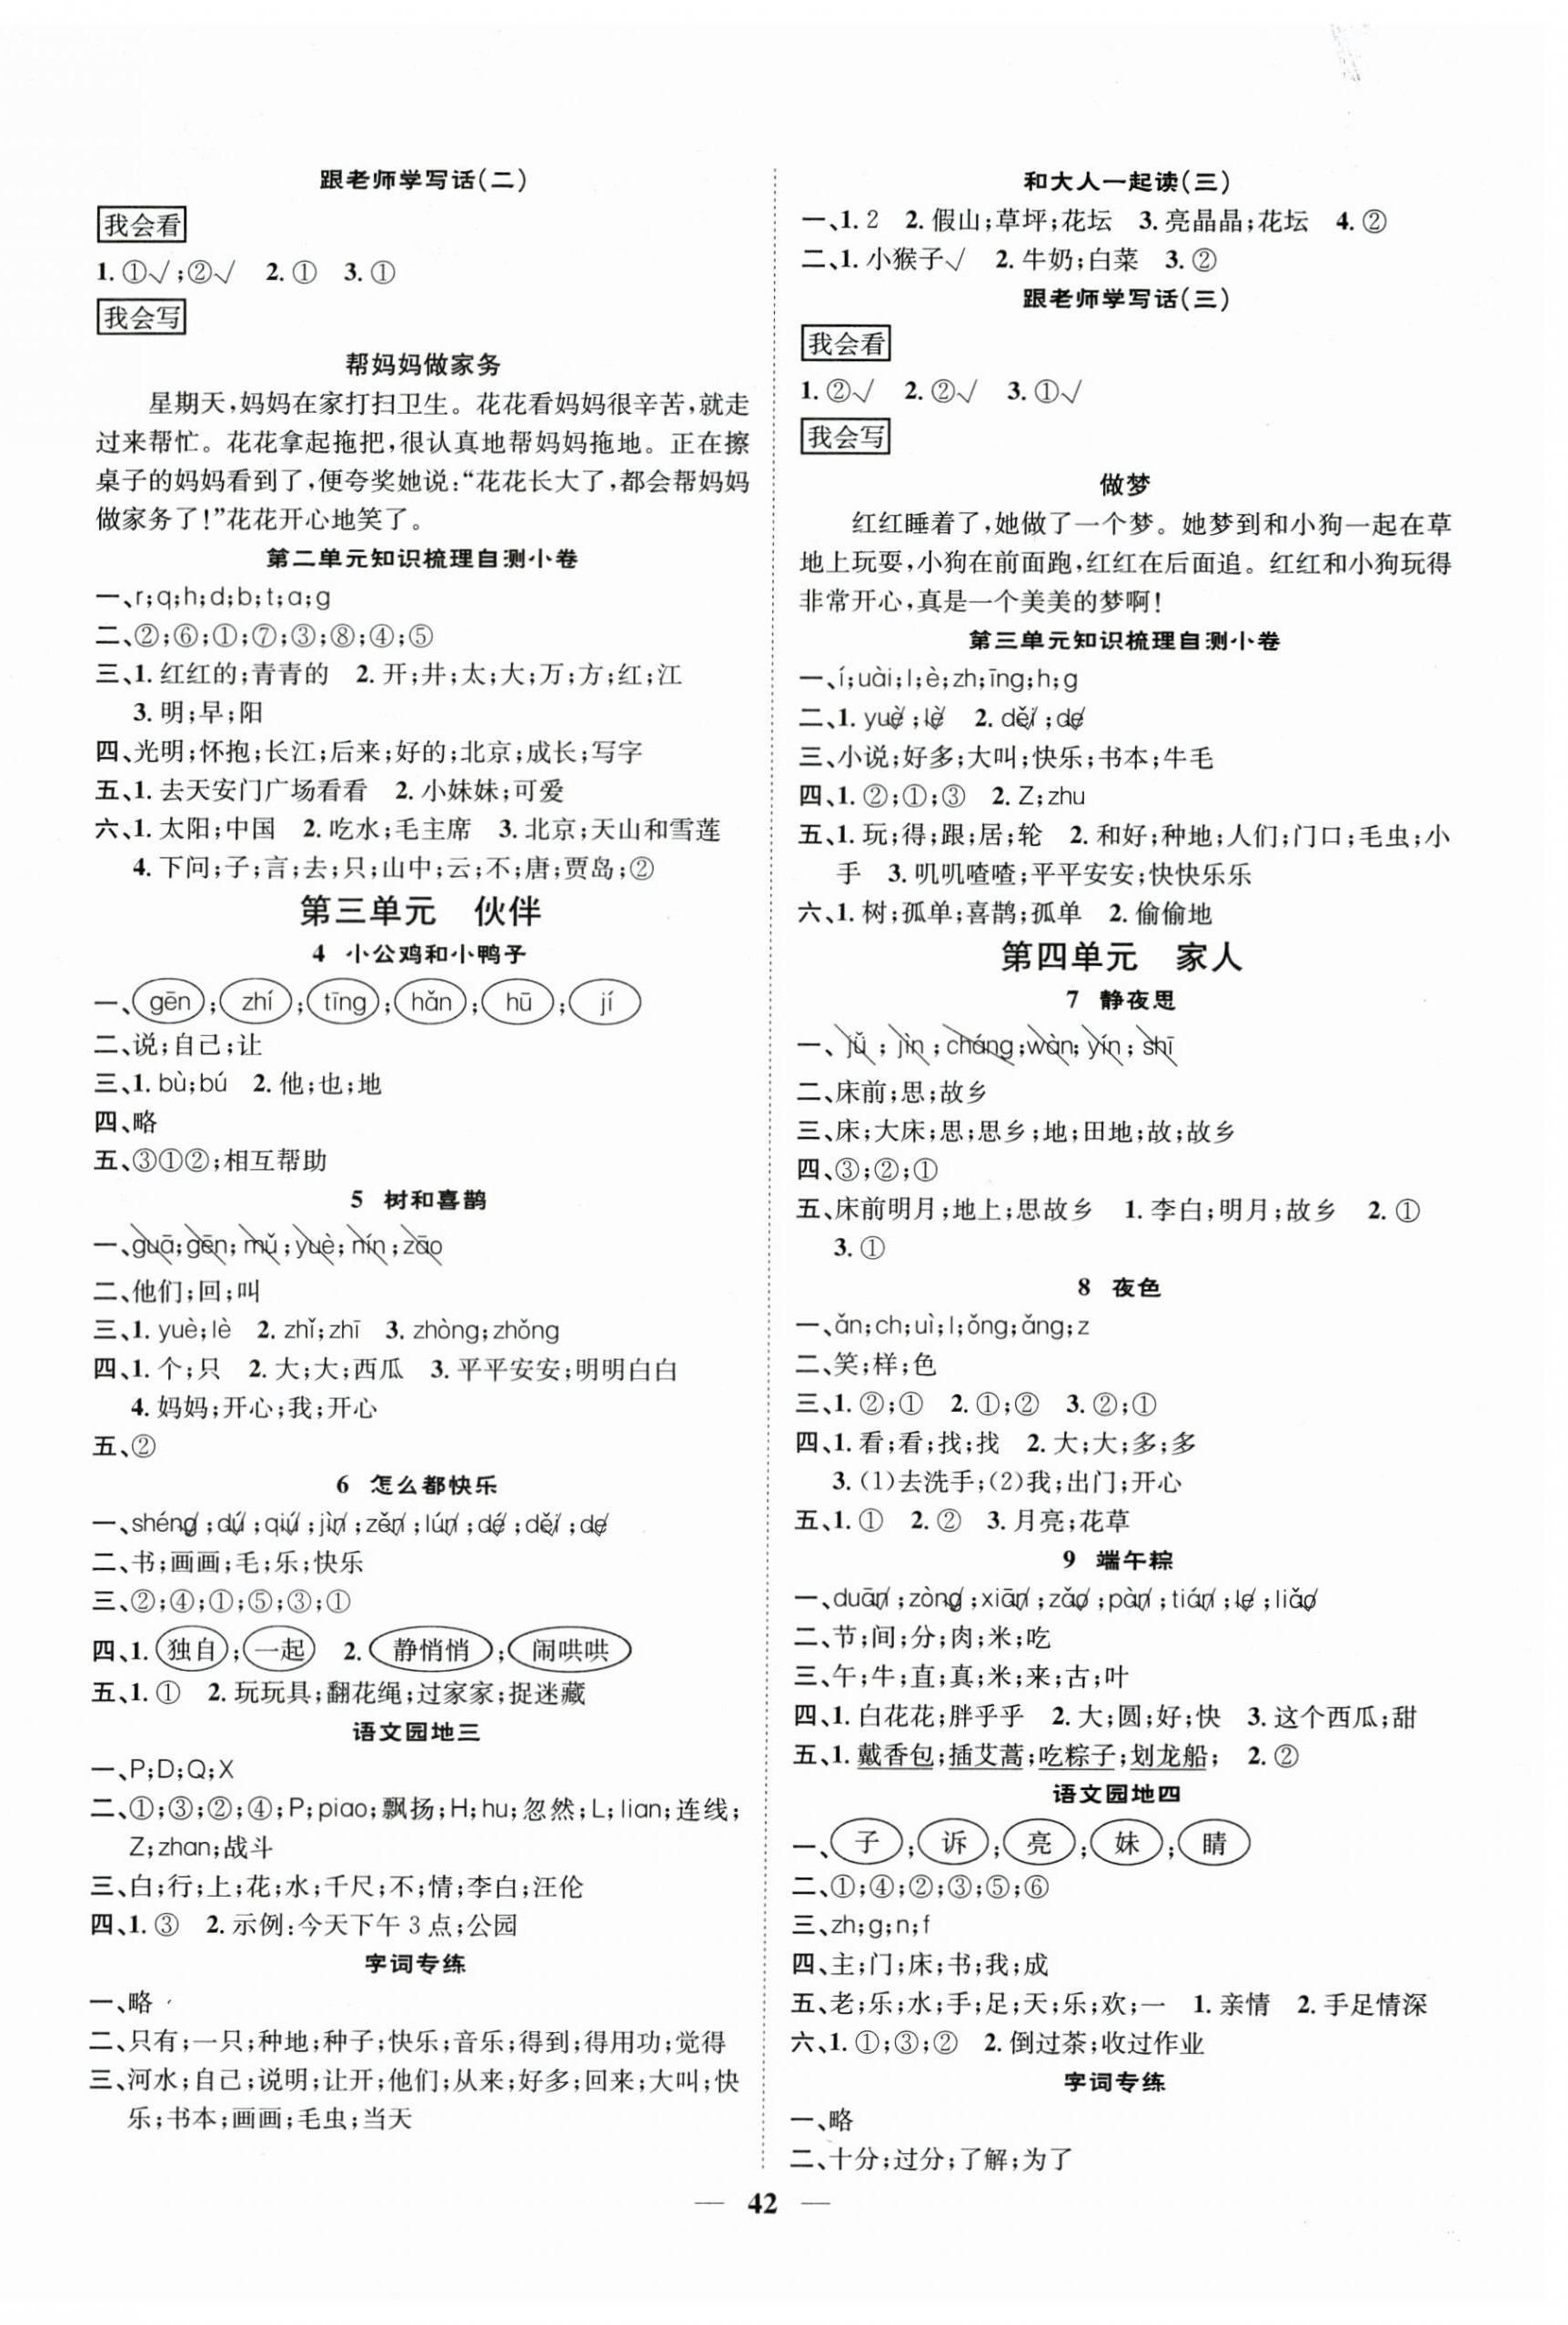 跟老师学写话(二)
我会看
1.①√;②√ 2.① 3.①
我会写
帮妈妈做家务
星期天,妈妈在家打扫卫生。花花看妈妈很辛苦,就走
过来帮忙。花花拿起拖把,很认真地帮妈妈拖地。正在擦
桌子的妈妈看到了,便夸奖她说:“花花长大了,都会帮妈妈
做家务了!”花花开心地笑了。
第二单元知识梳理自测小卷
一、r;q;h;d;b;t;a;g
二、②;⑥;①;⑦;③;⑧;④;⑤
三、1.红红的;青青的 2.开;井;太;大;万;方;红;江
3.明;早;阳
四、光明;怀抱;长江;后来;好的;北京;成长;写字
五、1.去天安门广场看看 2.小妹妹;可爱
六、1.太阳;中国 2.吃水;毛主席 3.北京;天山和雪莲
4.下问;子;言;去;只;山中;云;不;唐;贾岛;②
第三单元 伙伴
4 小公鸡和小鸭子
一、gēn;zhí;tīng;hǎn;hū;jí
二、说;自己;让
三、1.bù;bú 2.他;也;地
四、略
五、③①②;相互帮助
5 树和喜鹊
一、guā;gēn;mǔ;yuè;nín;zāo
二、他们;回;叫
三、1.yuè;lè 2.zhǐ;zhī 3.zhòng;zhǒng
四、1.个;只 2.大;大;西瓜 3.平平安安;明明白白
4.妈妈;开心;我;开心
五、②
6 怎么都快乐
一、shéng;dú;qiú;jìn;zěn;lún;dé;děi;de
二、书;画画;毛;乐;快乐
三、②;④;①;⑤;③;①
四、1.独自;一起 2.静悄悄;闹哄哄
五、1.① 2.玩玩具;翻花绳;过家家;捉迷藏
语文园地三
一、P;D;Q;X
二、①;③;②;④;P;piao;飘扬;H;hu;忽然;L;lian;连线;
Z;zhan;战斗
三、白;行;上;花;水;千尺;不;情;李白;汪伦
四、1.③ 2.示例:今天下午3点;公园
字词专练
一、略
二、只有;一只;种地;种子;快乐;音乐;得到;得用功;觉得
三、河水;自己;说明;让开;他们;从来;好多;回来;大叫;快
乐;书本;画画;毛虫;当天
和大人一起读(三)
一、1.2 2.假山;草坪;花坛 3.亮晶晶;花坛 4.②
二、1.小猴子√ 2.牛奶;白菜 3.②
跟老师学写话(三)
我会看
1.②√ 2.②√ 3.①√
我会写
做梦
红红睡着了,她做了一个梦。她梦到和小狗一起在草
地上玩耍,小狗在前面跑,红红在后面追。红红和小狗玩得
非常开心,真是一个美美的梦啊!
第三单元知识梳理自测小卷
一、í;uài;l;è;zh;īng;h;g
二、1.yuè;lè 2.děi;de
三、小说;好多;大叫;快乐;书本;牛毛
四、1.②;①;③ 2.Z;zhu
五、1.玩;得;跟;居;轮 2.和好;种地;人们;门口;毛虫;小
手 3.叽叽喳喳;平平安安;快快乐乐
六、1.树;孤单;喜鹊;孤单 2.偷偷地
第四单元 家人
7 静夜思
一、jǔ;jìn;cháng;wàn;yín;shī
二、床前;思;故乡
三、床;大床;思;思乡;地;田地;故;故乡
四、③;②;①
五、床前明月;地上;思故乡 1.李白;明月;故乡 2.①
3.①
8 夜色
一、ǎn;ch;uì;l;ǒng;ǎng;z
二、笑;样;色
三、1.②;① 2.①;② 3.②;①
四、1.看;看;找;找 2.大;大;多;多
3.(1)去洗手;(2)我;出门;开心
五、1.① 2.② 3.月亮;花草
9 端午粽
一、duān;zòng;xiān;zǎo;pàn;tián;le;liǎo
二、节;间;分;肉;米;吃
三、午;牛;直;真;米;来;古;叶
四、1.白花花;胖乎乎 2.大;圆;好;快 3.这个西瓜;甜
五、1.戴香包;插艾蒿;吃粽子;划龙船; 2.②
语文园地四
一、子;诉;亮;妹;睛
二、①;④;②;③;⑤;⑥
三、zh;g;n;f
四、主;门;床;书;我;成
五、老;乐;水;手;足;天;乐;欢;一 1.亲情 2.手足情深
六、1.①;③;② 2.倒过茶;收过作业
字词专练
一、略
二、十分;过分;了解;为了
— 42 —